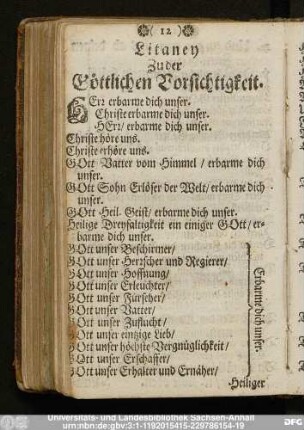 ( 12 )
Litaney
Zu der
Göttlichen Vorsichtigkeit.
HErr erbarme dich unser.
Christe erbarme dich unser.
HErr/ erbarme dich unser.
Christe höre uns.
Christe erhöre uns.
GOtt Vatter vom Himmel / erbarme dich
unser.
GOtt Sohn Erlöser der Welt/ erbarme dich
unser.
GOtt Heil. Geist/ erbarme dich unser.
Heilige Dreyfaltigkeit ein einiger GOtt/ er-
barme dich unser.
GOtt unser Beschirmer/
GOtt unser Hertscher und Regierer/
GOtt unser Hoffnung/
GOtt unser Erleuchter/
GOtt unser Fürseher/
GOtt unser Vatter/
GOtt unser Zuflucht/
GOtt unser eintzige Lieb/
GOtt unser höchste Vergnüglichkeit/
GOtt unser Erschaffer/
GOtt unser Erhalter und Ernäher/
Erbarme dich unser.
Heiliger
Universitäts- und Landesbibliothek Sachsen-Anhalt
urn:nbn:de:gbv:3:1-1192015415-229786154-19
DFG